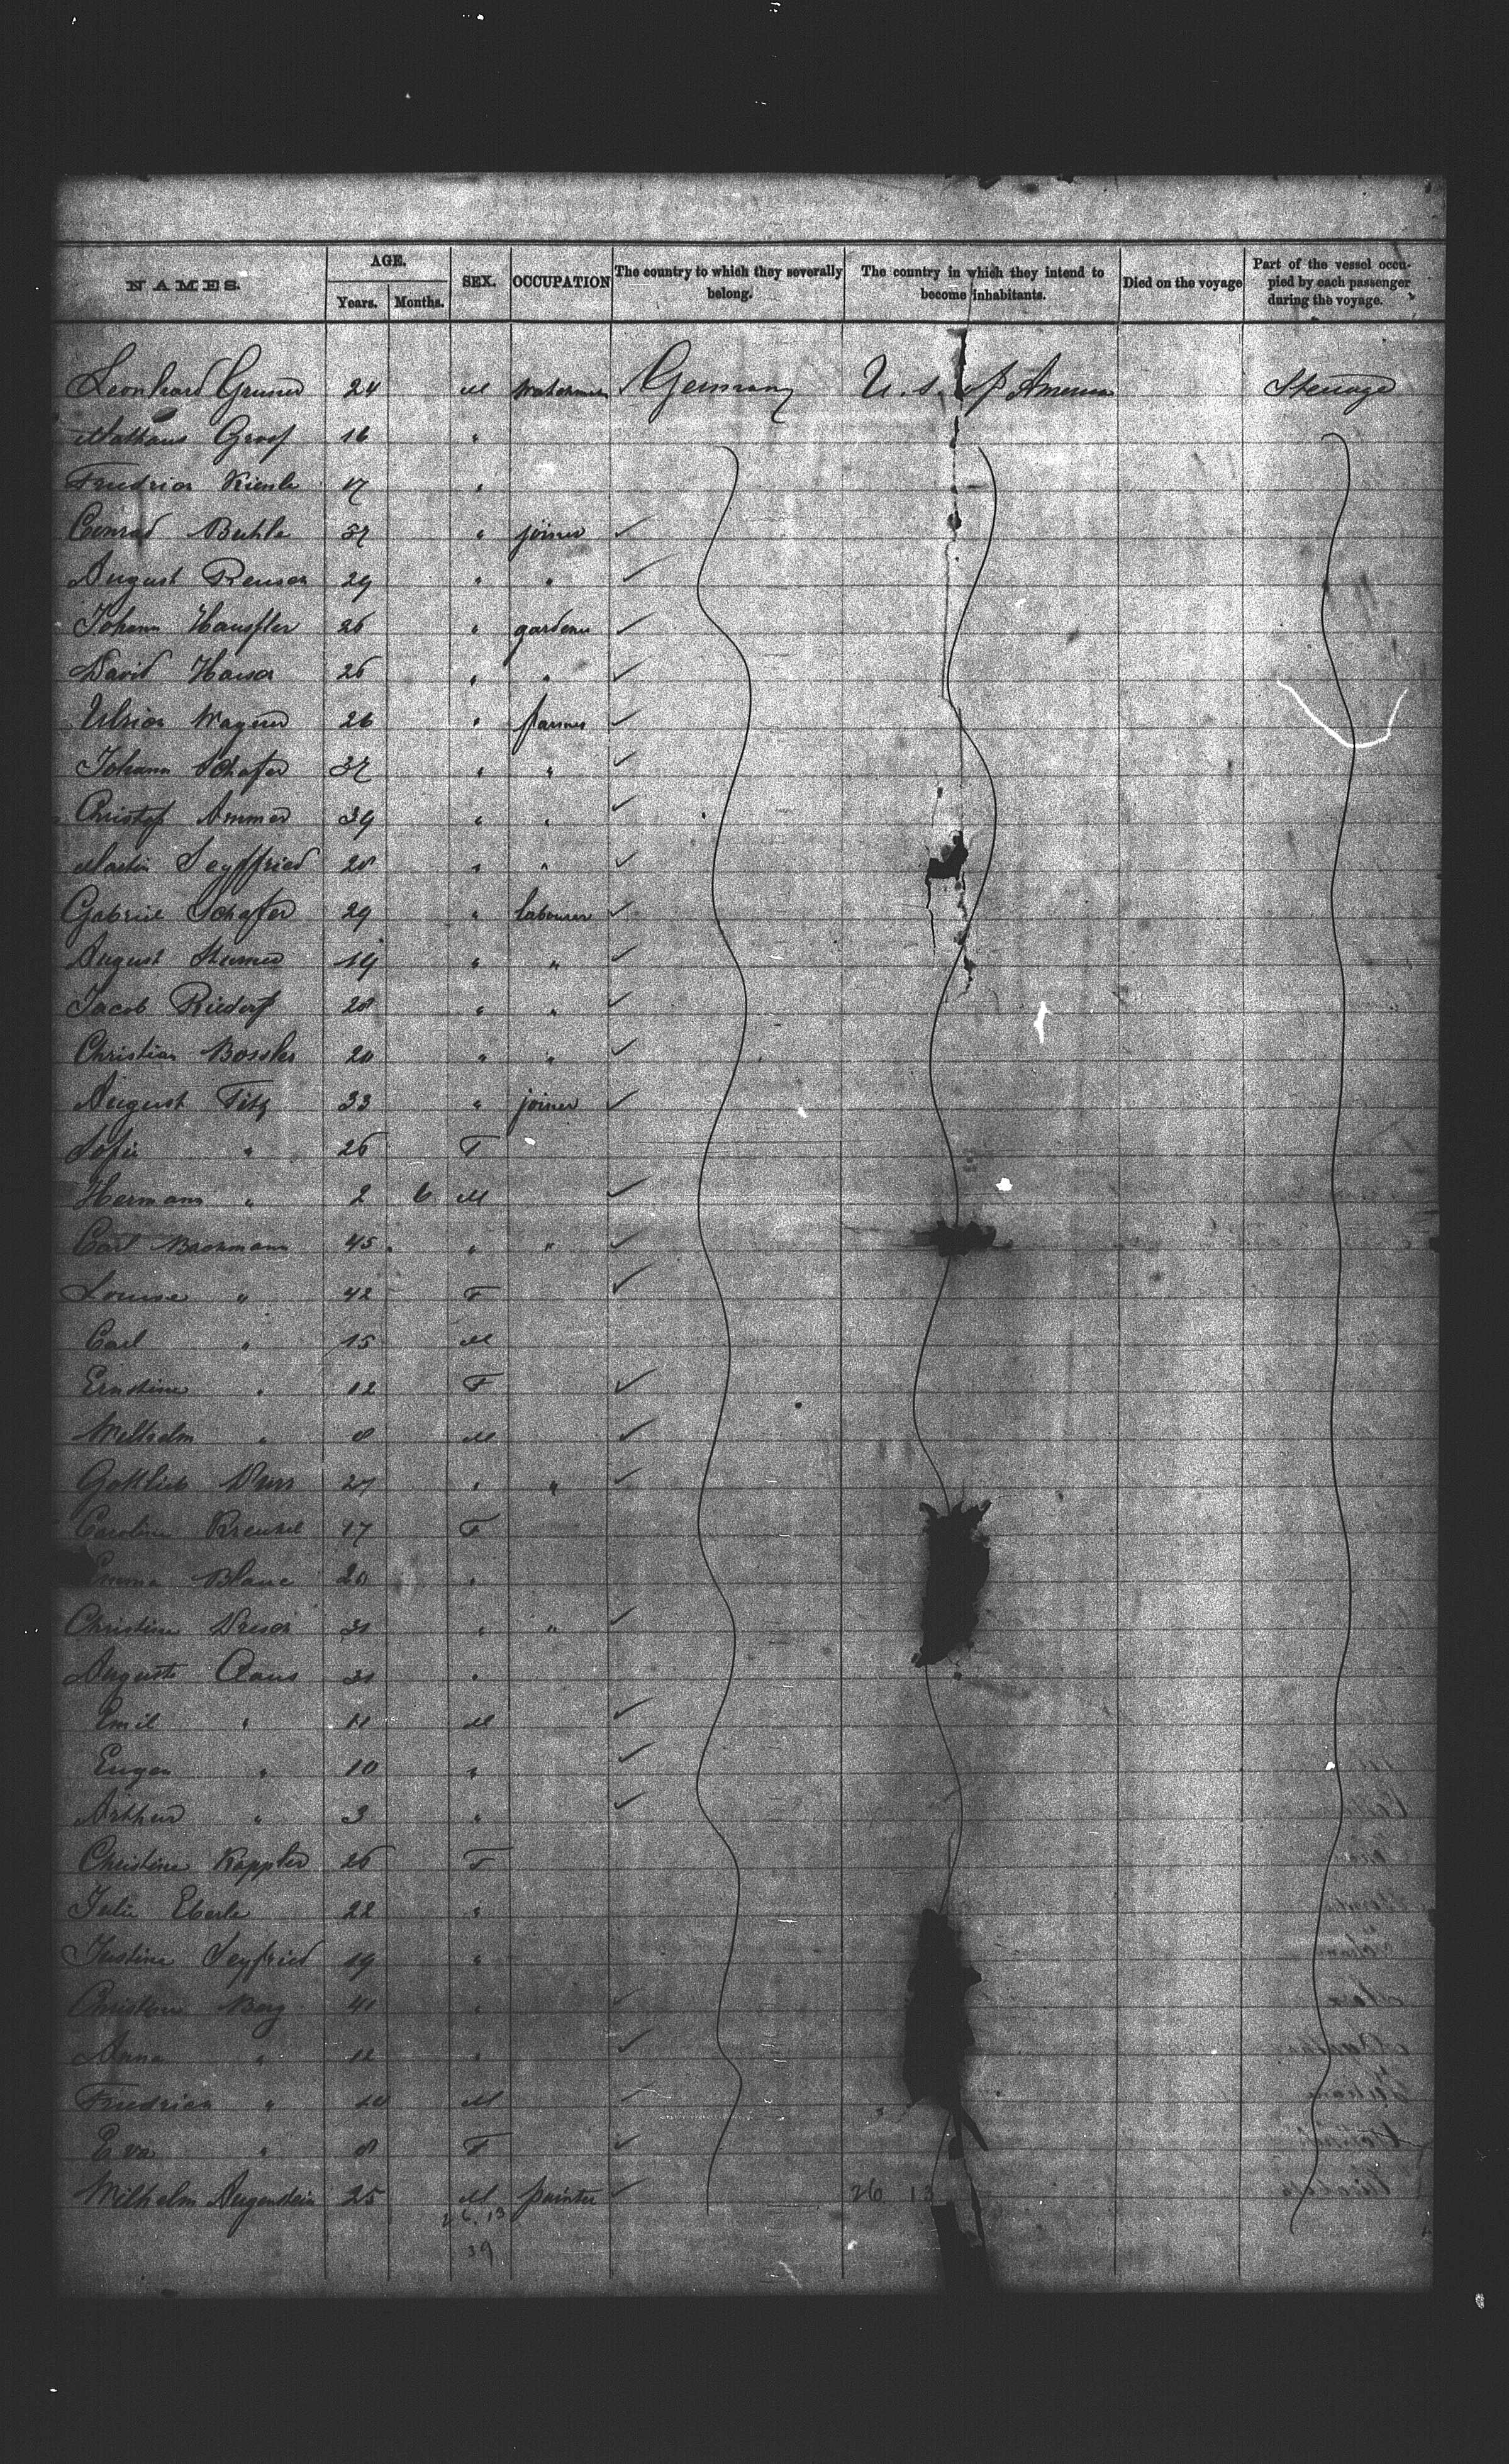 NAMES. AGE. Years. Months. SEX. OCCUPATION The country to which they severally belong. The country in which they intend to become inhabitants. Died on the voyage Part of the vessel occupied by each passenger during the voyage.
Leonhard 24 M Germany U. S. of America Steerage
Mathaus Groof 16 "
17 "
Conrad Buhle "  joiner
August 29 " "
Johann 26 " gardener
David 26 " "
Wagner 26 " farmer
Johann Schafer " "
Christof Ammer 39 " "
Martin Seyffried 28 " "
Gabriel Schafer 29 " labourer
August 19 " "
Jacob 28 " "
Christian Bossler 20 " "
August Titz 33 " joiner
Sofie " 26 F
Hermann " 2 6 M
Carl 45 " "
Louise " 42 F
Carl " 15 M
Ernstine " 12 F
Wilhelm " 8 M
Gottlieb 27 " "
Caroline 17 F
Emma Blanc 20 "
Christine 31 " "
Auguste Claus 31 "
Emil " 11 M
Eugen " 10 "
Arthur " 3 "
Christine Kappler 26 F
Julie Eberle 22 "
Justine Seyfried 19 "
Christine Berg 41 "
Anna " 12 "
Friedrich " 10 M
Eva " 8 F
Wilhelm Augenstein 25 M painter 26 13
26. 13
39